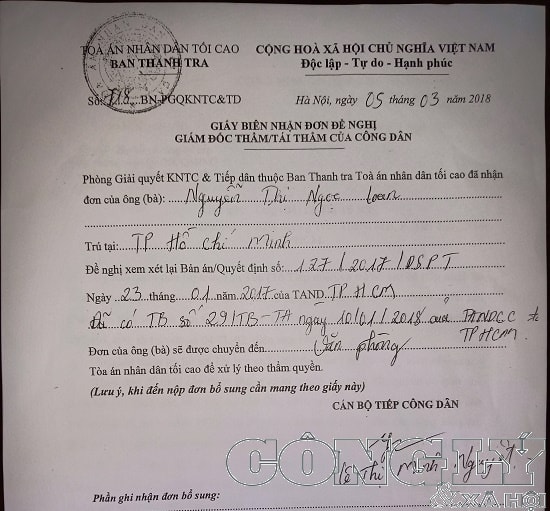 TOÀ ÁN NHÂN DÂN TỐI CAO
BAN THANH TRA
CỘNG HOÀ XÃ HỘI CHỦ NGHĨA VIỆT NAM
Độc lập - Tự do - Hạnh phúc
Số: 718 BN-PGQKNTC&TD
Hà Nội, ngày 05 tháng 03 năm 2018
GIẤY BIÊN NHẬN ĐƠN ĐỀ NGHỊ
GIÁM ĐỐC THẨM/TÁI THẨM CỦA CÔNG DÂN
Phòng Giải quyết KNTC & Tiếp dân thuộc Ban Thanh tra Toà án nhân dân tối cao đã nhận
đơn của ông (bà): Nguyễn Thị Ngọc Loan
Trú tại: TP Hồ Chí Minh
Đề nghị xem xét lại Bản án/Quyết định số: 127/2017/DSPT
Ngày 23 tháng 01 năm 2017 của TAND TP HCM
Đã có TB số 29/TB-TA ngày 10/01/2018 của TANDCC tại
TPHCM
Đơn của ông (bà) sẽ được chuyển đến Văn phòng
Tòa án nhân dân tối cao để xử lý theo thẩm quyền.
(Lưu ý, khi đến nộp đơn bổ sung cần mang theo giấy này)
CÁN BỘ TIẾP CÔNG DÂN
Lê Thị Minh Nguyệt
CÔNG LÝ
& XÃ HỘI
Phần ghi nhận đơn bổ sung: